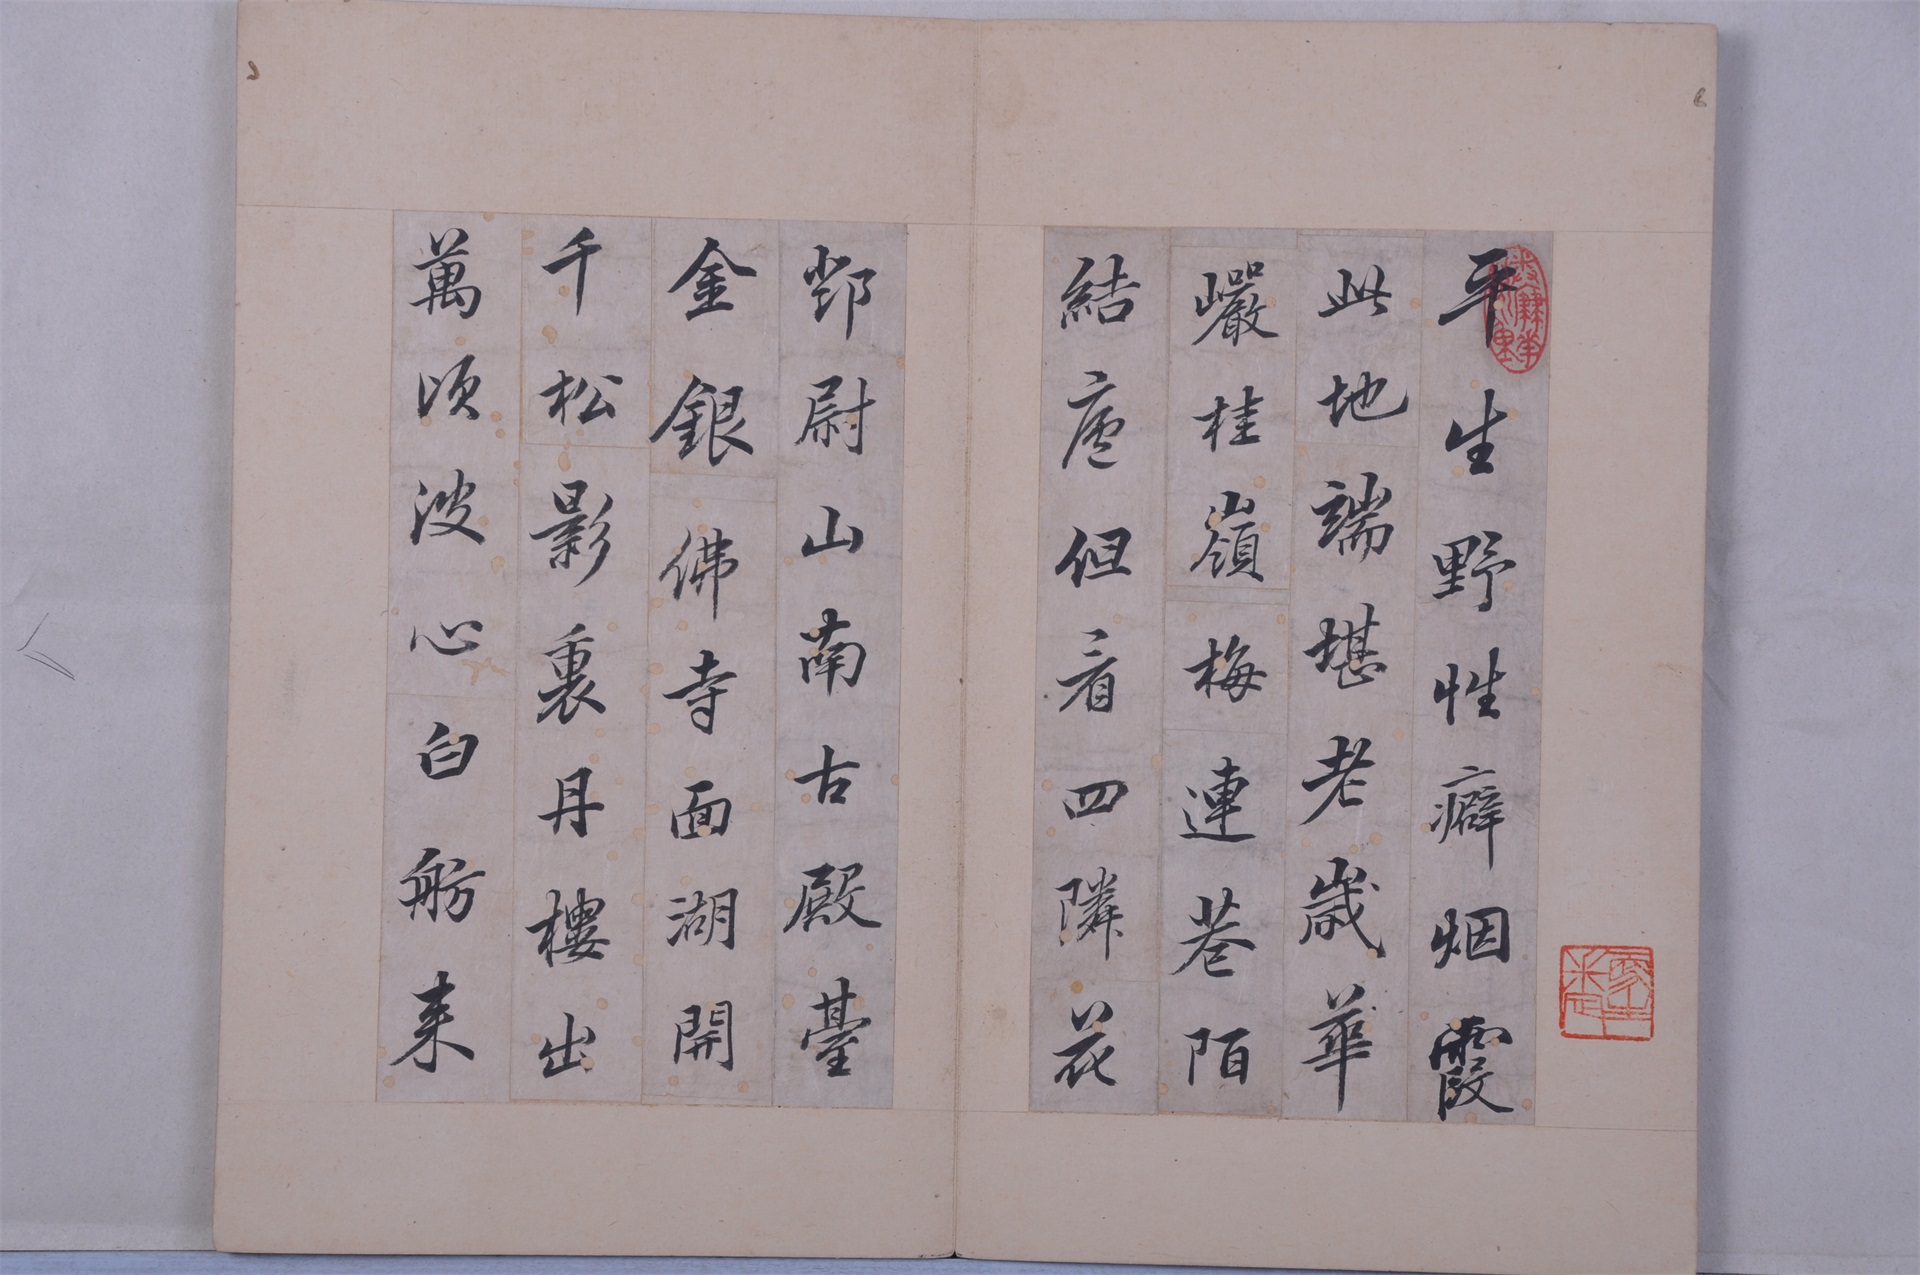 平生野性癖烟霞
此地端堪老歲華
巖桂嶺梅連巷陌
結廬但看四隣花
鄧尉山南古殿臺
金銀佛寺面湖開
千松影裏丹樓出
萬頃波心白舫来